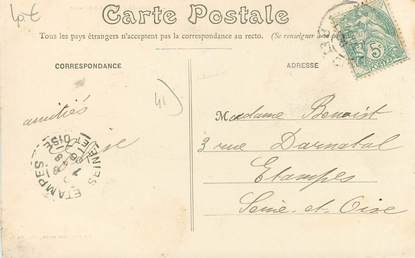 Carte Postale
Tous les pays étrangers n'acceptent pas la correspondance au recto. (Se renseigner
CORRESPONDANCE
ADRESSE
amitiés
41)
Madame Benoist
3 rue Darnatal
Etampes
Seine-et-Oise
ETAMPES
SEINE ET OISE
5